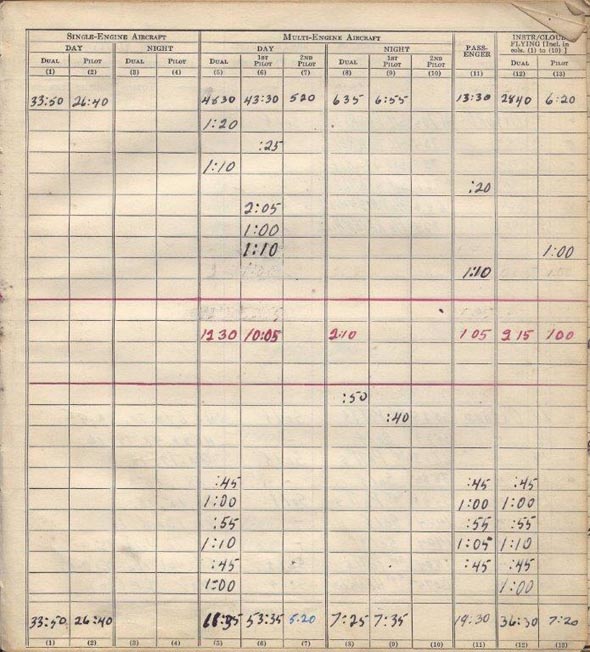 SINGLE-ENGINE AIRCRAFT MULTI-ENGINE AIRCRAFT PASS-ENGER INSTR/CLOUD FLYING [Incl. in cols. (1) to (10)]
DAY NIGHT DAY NIGHT
DUAL PILOT DUAL PILOT DUAL 1ST PILOT 2ND PILOT DUAL 1ST PILOT 2ND PILOT DUAL PILOT
(1) (2) (3) (4) (5) (6) (7) (8) (9) (10) (11) (12) (13)
33:50 26:40 4830 43:30 520 635 6:55 13:30 2840 6:20
1:20
:25
1:10
:20
2:05
1:00
1:10 1:00
1:10
1230 10:05 2:10 1 05 2 15 1 00
:50
:40
:45 :45 :45
1:00 1:00 1:00
:55 :55 :55
1:10 1:05 1:10
:45 :45 :45
1:00 1:00
33:50 26:40 53:35 5.20 7:25 7:35 19:30 36:30 7:20
(1) (2) (3) (4) (5) (6) (7) (8) (9) (10) (11) (12) (13)